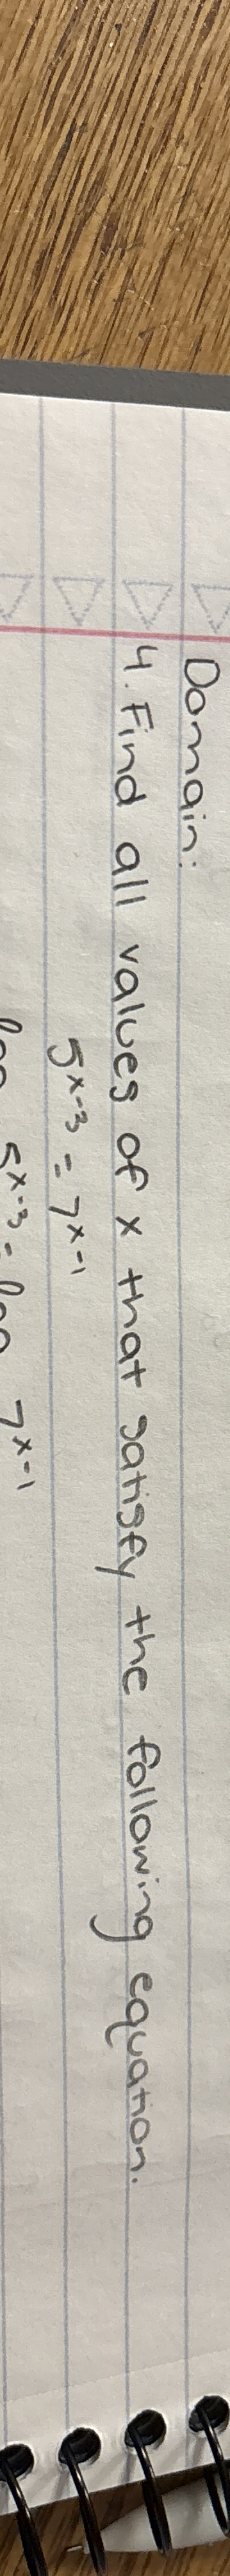 Domain:
4. Find all values of x that satisfy the following equation.
5ˣ⁻³ = 7ˣ⁻¹
5ˣ⁻³ = 7ˣ⁻¹